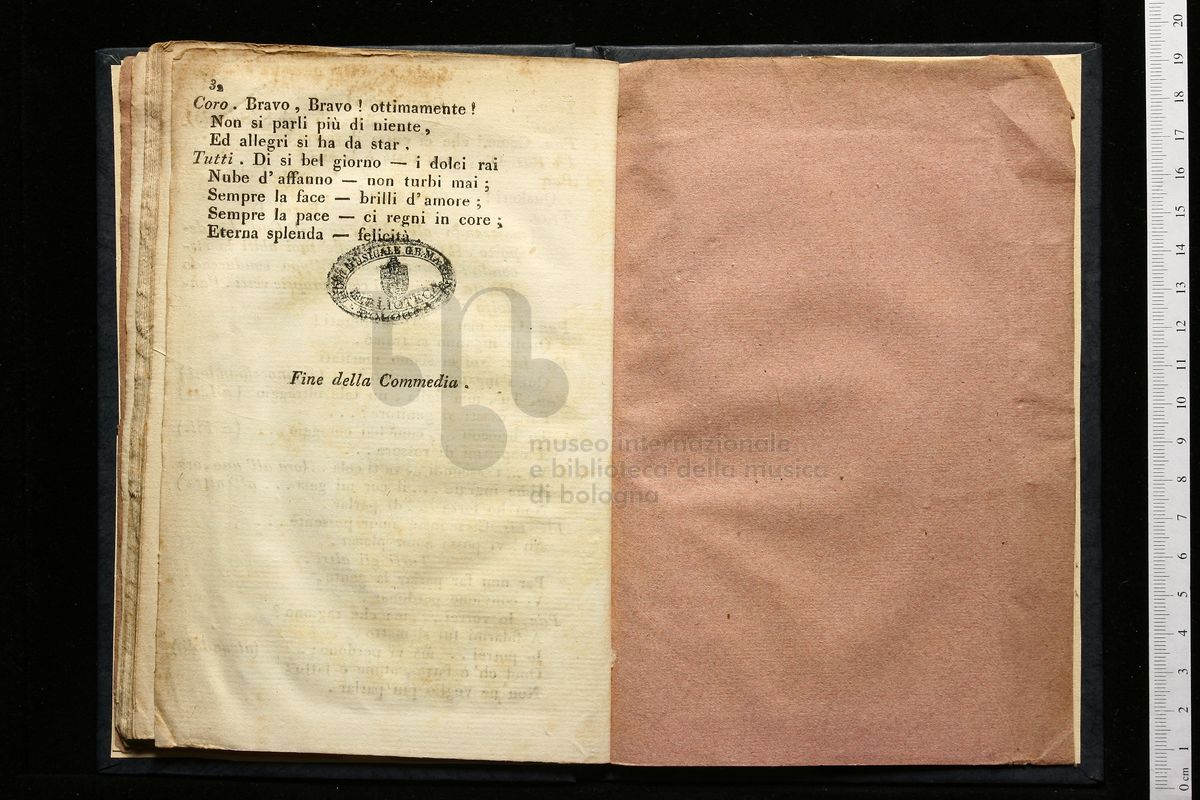 32
Coro. Bravo, Bravo! ottimamente!
Non si parli più di niente,
Ed allegri si ha da star.
Tutti. Di si bel giorno — i dolci rai
Nube d'affanno — non turbi mai;
Sempre la face — brilli d'amore;
Sempre la pace — ci regni in core;
Eterna splenda — felicità
MUSICALE G.B. MARTINI
BIBLIOTECA
BOLOGNA
Fine della Commedia.
museo internazionale
e biblioteca della musica
di bologna
20
19
18
17
16
15
14
13
12
11
10
9
8
7
6
5
4
3
2
1
0 cm